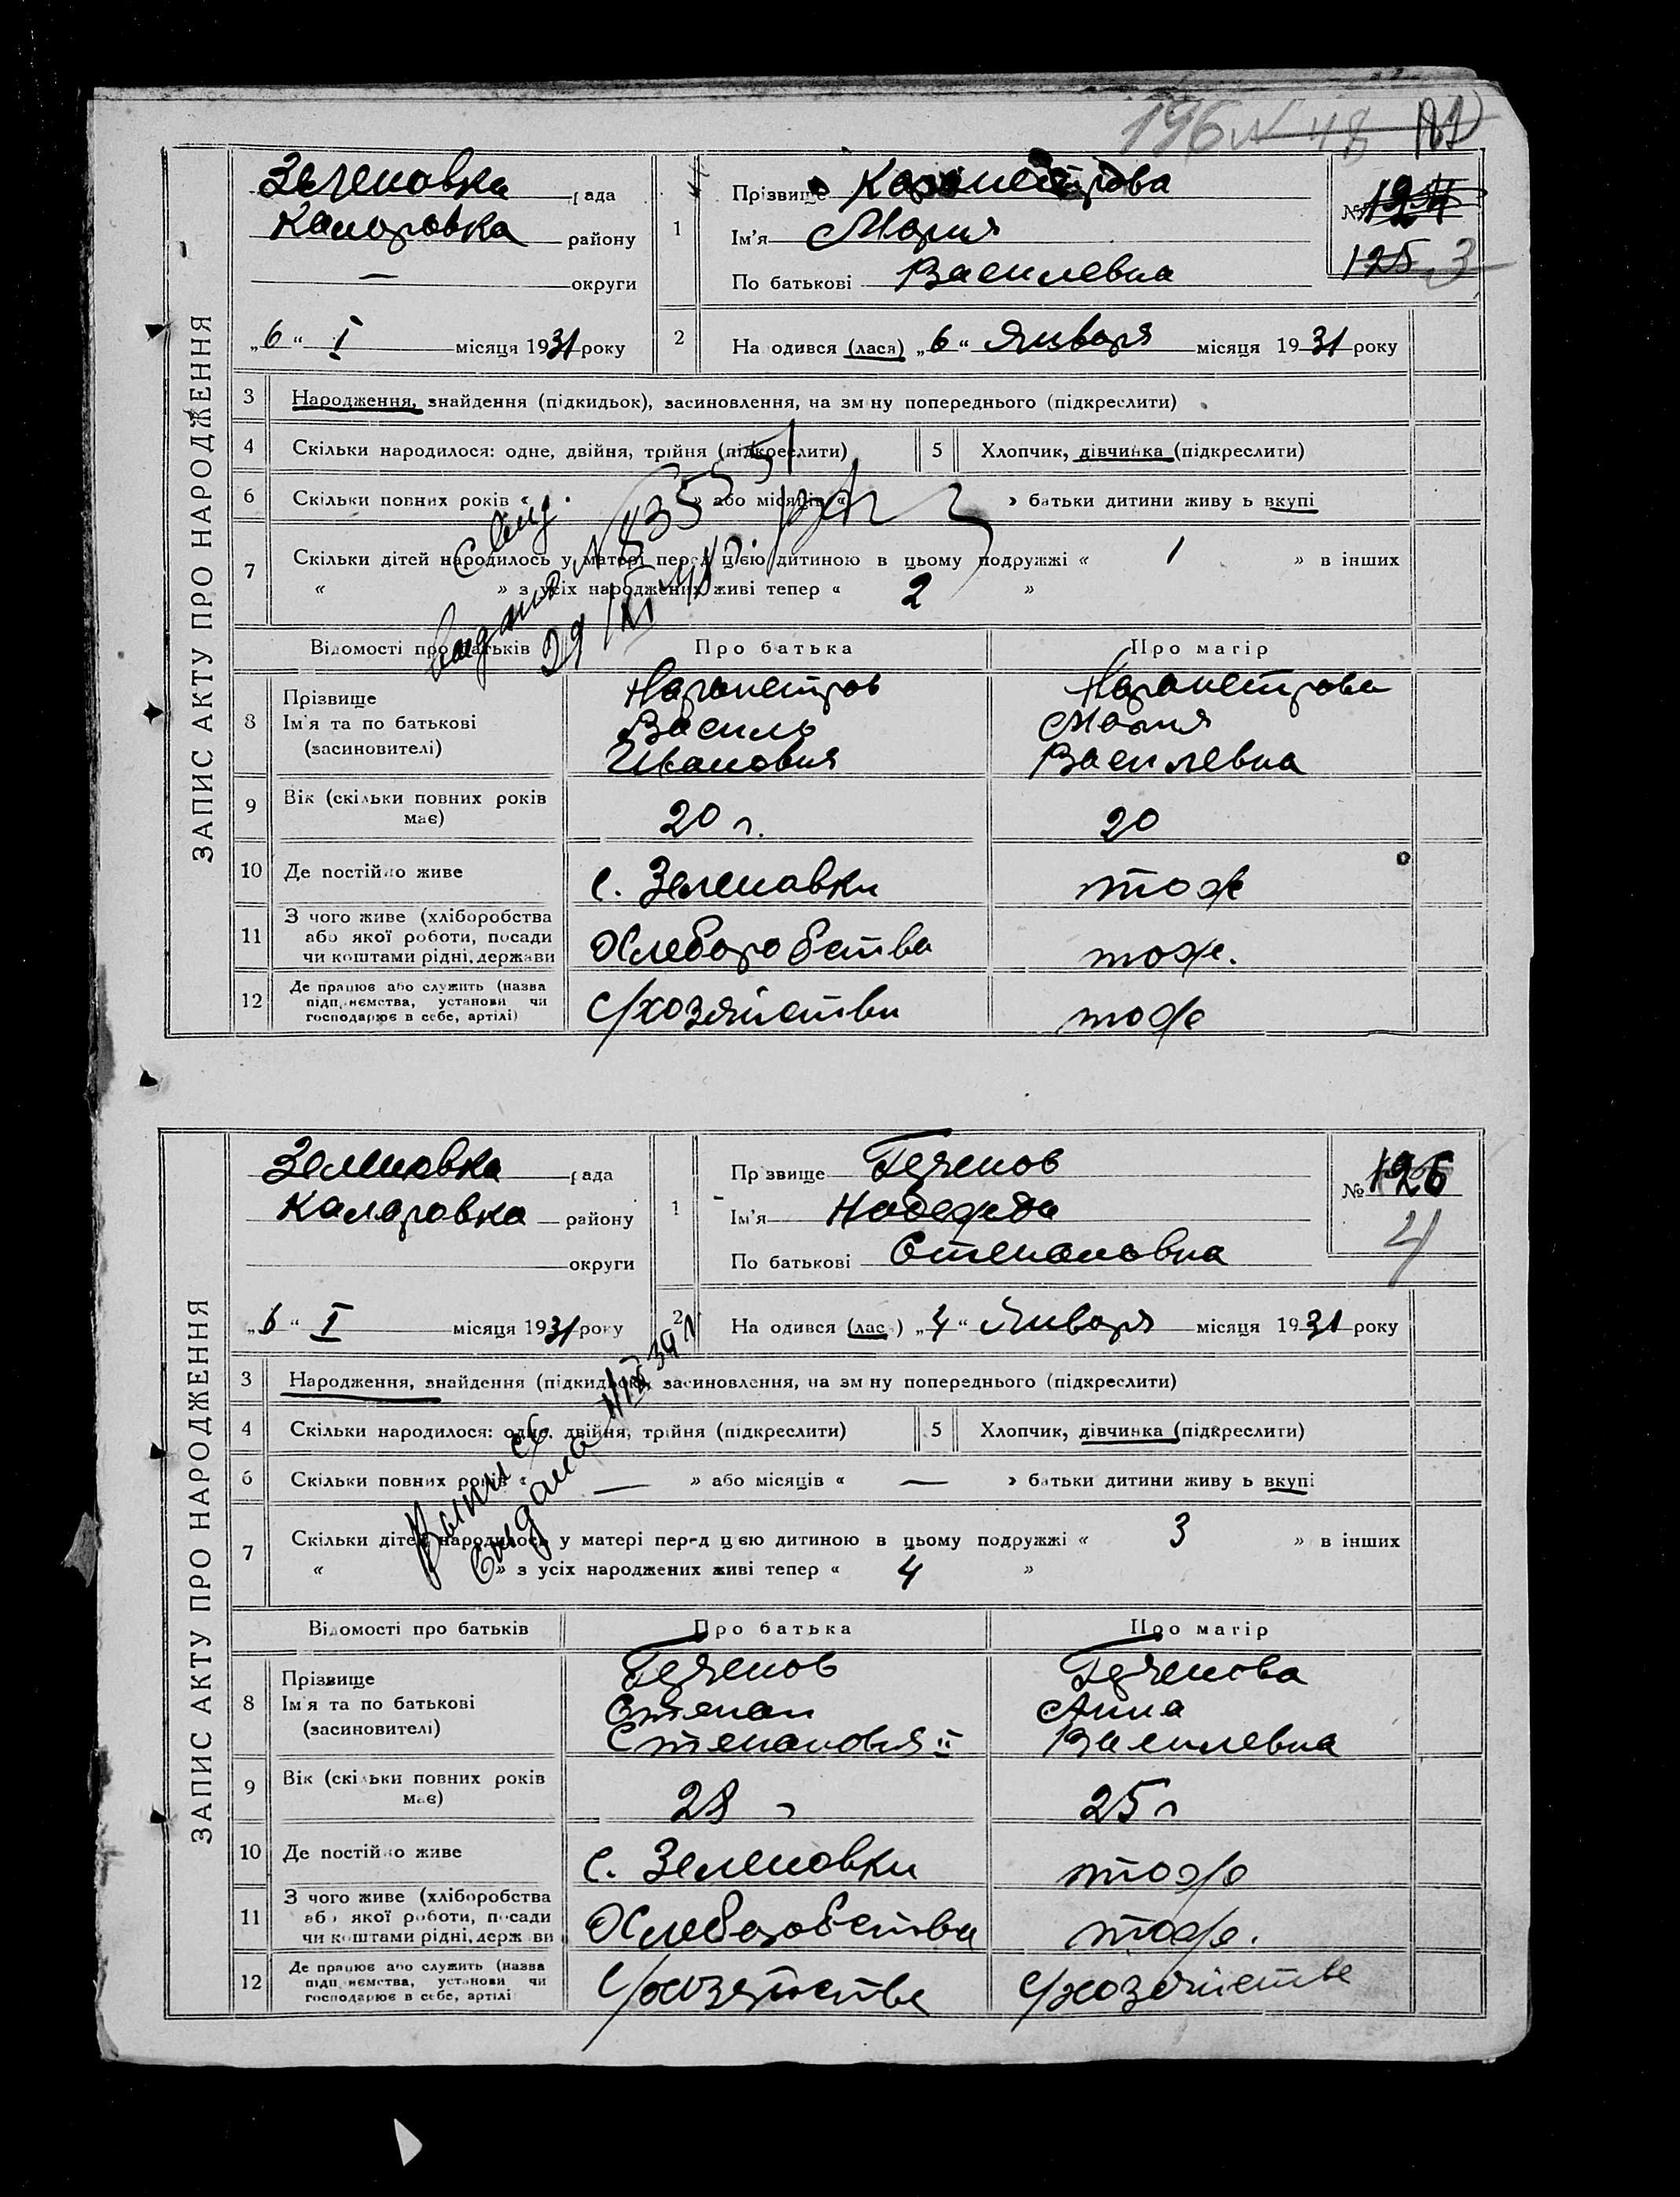 196 N 48
ЗАПИС АКТУ ПРО НАРОДЖЕННЯ
Зеленовка рада
Коларовка району
— округи
„6“ I місяця 1931 року
1 Прізвище Карапетрова
Ім'я Мария
По батькові Василевна
№ 124
125 3
2 На одився (лася) „6“ Января місяця 1931 року
3 Народження, знайдення (підкидьок), засиновлення, на зм ну попереднього (підкреслити)
4 Скільки народилося: одне, двійня, трійня (підкреслити)
5 Хлопчик, дівчинка (підкреслити)
6 Скільки повних років « » або місяців « » батьки дитини живу ь вкупі
7 Скільки дітей народилось у матері перед цією дитиною в цьому подружжі « 1 » в інших
« » з усіх народжених живі тепер « 2 »
Відомості про батьків Про батька Про матір
8 Прізвище
Ім'я та по батькові
(засиновителі)
Карапетров
Василь
Иванович
Карапетрова
Мария
Василевна
9 Вік (скільки повних років має) 20 г. 20
10 Де постійно живе с. Зеленовки тоже
11 З чого живе (хліборобства
або якої роботи, посади
чи коштами рідні, держави
Хлеборобства тоже.
12 Де працює або служить (назва
підп. немства, установи чи
господарює в себе, артілі)
С/хозяйстви тоже
ЗАПИС АКТУ ПРО НАРОДЖЕННЯ
Зеленовка рада
Коларовка району
округи
„6“ I місяця 1931 року
1 Пр звище Гаченов
Ім'я Надежда
По батькові Степановна
№ 126
4
2 На одився (лас ) „4“ Января місяця 1931 року
3 Народження, знайдення (підкидьок), засиновлення, на зм ну попереднього (підкреслити)
4 Скільки народилося: одне, двійня, трійня (підкреслити)
5 Хлопчик, дівчинка (підкреслити)
6 Скільки повних років « — » або місяців « — » батьки дитини живу ь вкупі
7 Скільки дітей народилось у матері перед цією дитиною в цьому подружжі « 3 » в інших
« » з усіх народжених живі тепер « 4 »
Відомості про батьків Про батька Про матір
8 Прізвище
Ім'я та по батькові
(засиновителі)
Гаченов
Степан
Степанович
Гаченова
Анна
Василевна
9 Вік (скільки повних років має) 28 г 25 г
10 Де постійно живе с. Зеленовки тоже
11 З чого живе (хліборобства
або якої роботи, посади
чи коштами рідні, держ ви
Хлеборобства тоже.
12 Де працює або служить (назва
підп. немства, установи чи
господарює в себе, артілі
С/хозяйстве С/хозяйстве